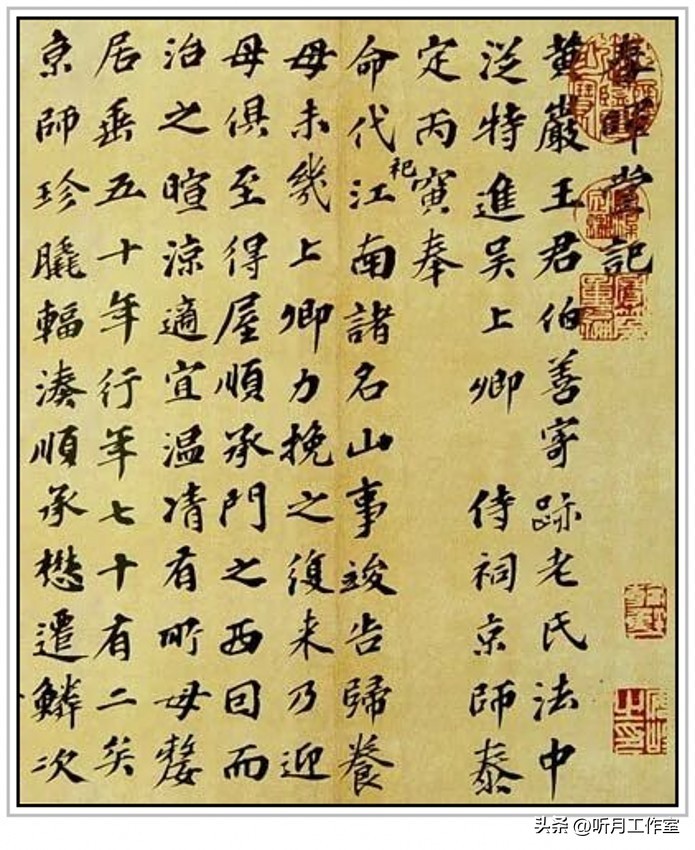 春暉堂記
黃巖王君伯善寄跡老氏法中
從特進吳上卿 侍祠京師泰
定丙寅奉
命代祀江南諸名山事竣告歸養
母未幾上卿力挽之復来乃迎
母俱至得屋順承門之西因而
治之暄涼適宜温凊有所母嫠
居垂五十年行年七十有二矣
京師珍輻湊順承懋遷鱗次
头条 @听月工作室